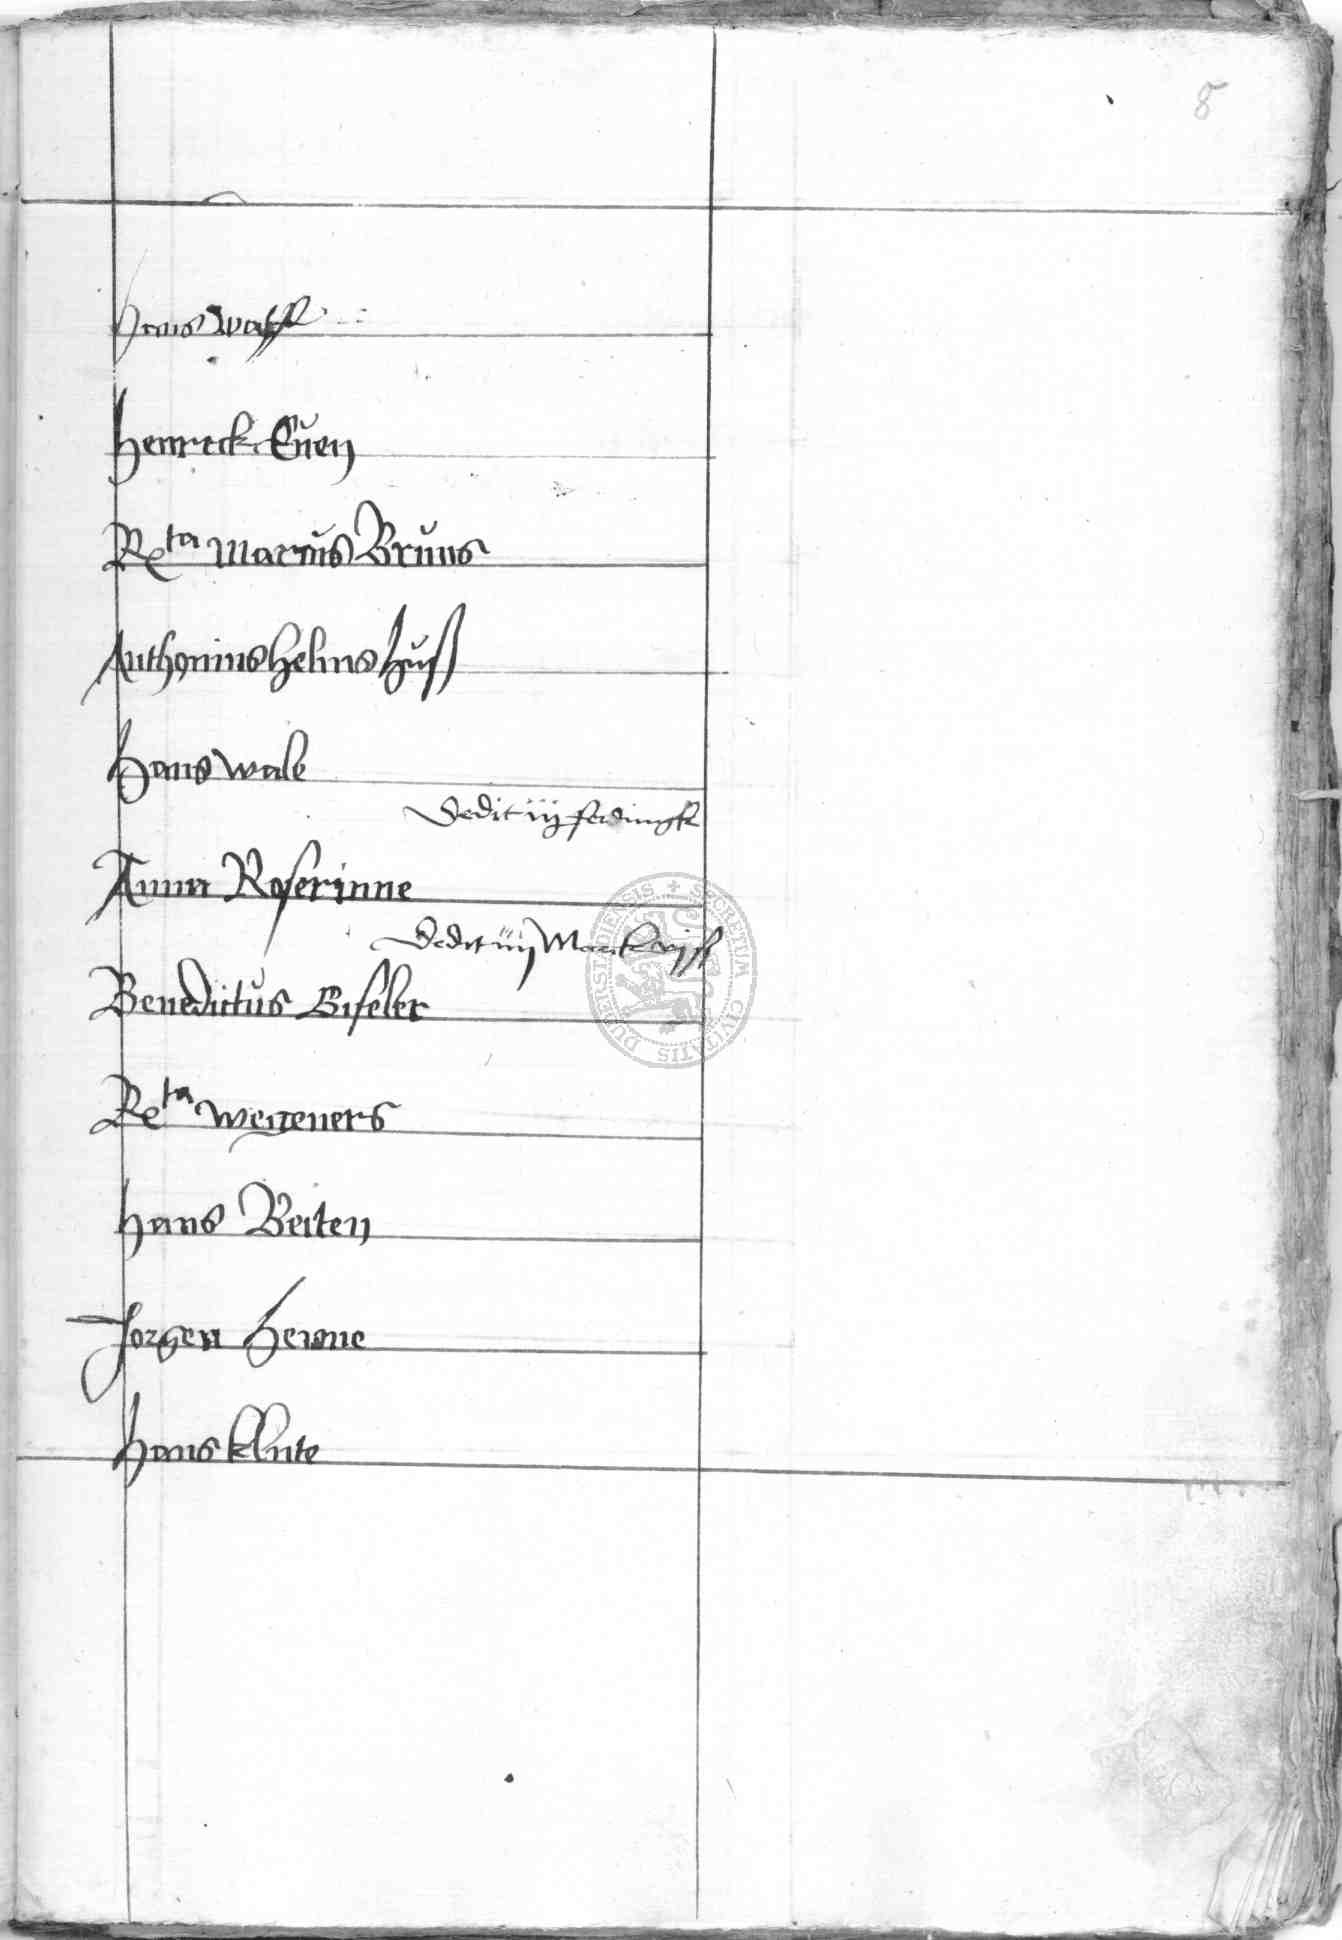 8
Hans Wolff
Henrick Euen
Rcta Marcus Bruns
Anthonius Helmshuß
Hans Wale
Dedit iij ferdingk
Anna Roserinne
Dedit iiij Marck
Benedictus Giseler
Rcta Weygeners
Hans Beiten
Jorgen Heyne
Hans Klute
SECRETUM CIVITATIS DUDERSTADIENSIS